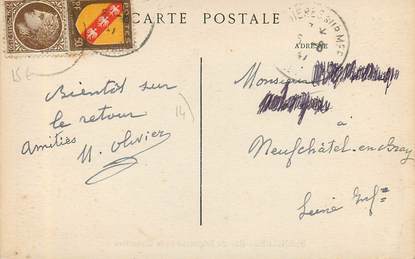 CARTE POSTALE
ADRESSE
15 E
Bientôt sur
le retour
14
Amitiés
M. Olivier
Monsieur
à
Neufchâtel-en-Bray
Seine Infre